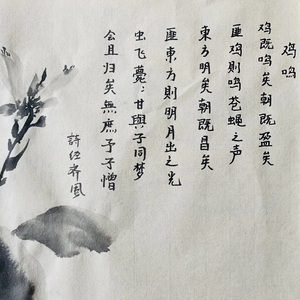 鸡鸣
鸡既鸣矣朝既盈矣
匪鸡則鸣苍蝇之声
東方明矣朝既昌矣
匪東方則明月出之光
虫飞薨薨甘與子同梦
会且归矣無庶予子憎
詩经齐風